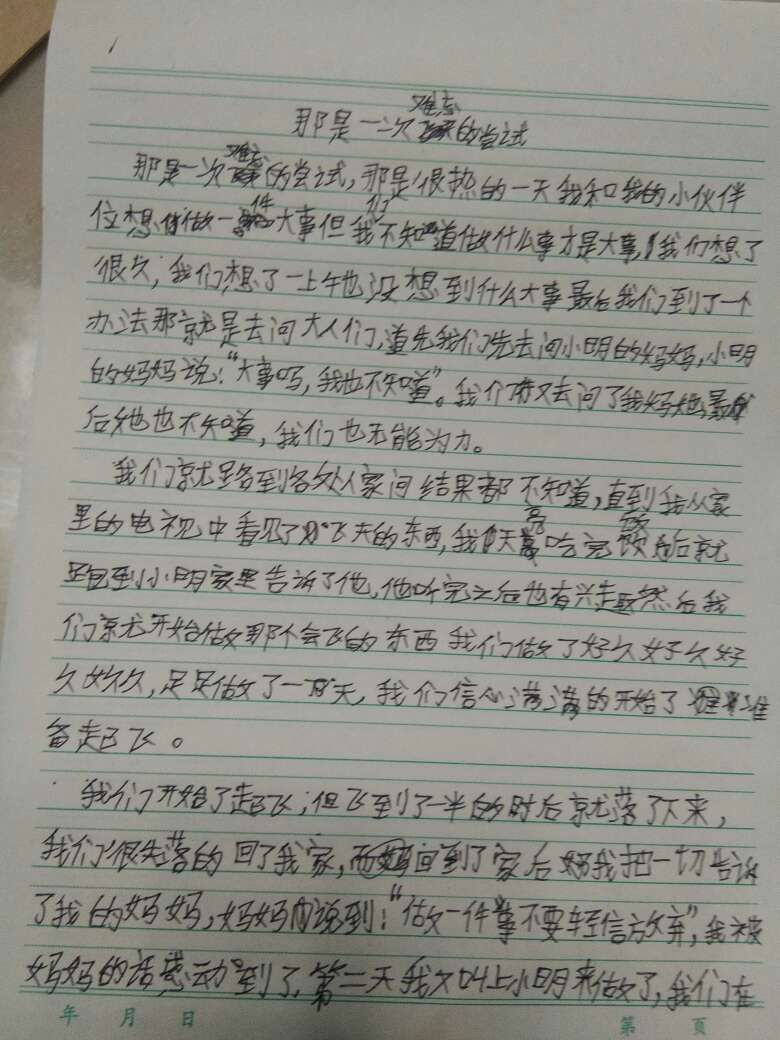 那是一次难忘的尝试
那是一次难忘的尝试,那是很热的一天我和我的小伙伴
位想做一件大事但我们不知道做什么事才是大事,我们想了
很久,我们想了一上午也没想到什么大事最后我们到了一个
办法那就是去问大人们,首先我们先去问小明的妈妈,小明
的妈妈说:“大事吗,我也不知道”。我们又去问了我妈她最
后她也不知道,我们也无能为力。
我们就跑到各处人家问结果都不知道,直到我从家
里的电视中看见了飞天的东西,我天亮吃完饭后就
跑到小明家里告诉了他,他听完之后也有兴趣然后我
们就开始做那个会飞的东西我们做了好久好久好
久好久,足足做了一天,我们信心满满的开始了准
备起飞。
我们开始了起飞,但飞到了一半的时后就落了下来,
我们很失落的回了我家,而回到了家后我把一切告诉
了我的妈妈,妈妈说到:“做一件事不要轻信放弃”,我被
妈妈的话感动到了,第二天我又叫上小明来做了,我们在
年 月 日 第 页